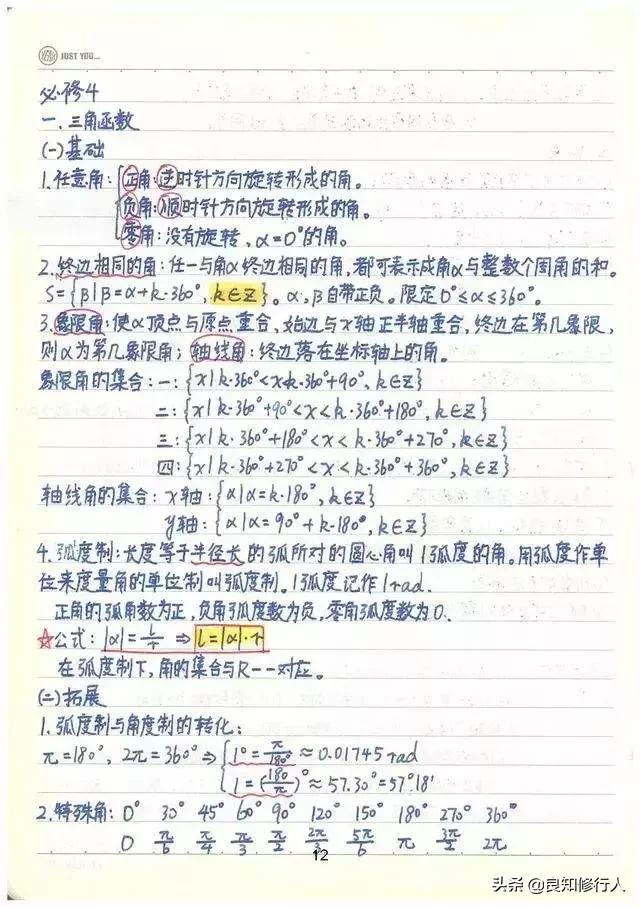 JUST YOU...
必修4
一、三角函数
(一)基础
1.任意角:{正角:逆时针方向旋转形成的角。
负角:顺时针方向旋转形成的角。
零角:没有旋转,α=0°的角。
2.终边相同的角:任一与角α终边相同的角,都可表示成角α与整数个周角的和。
S={β|β=α+k·360°,k∈Z}。α、β自带正负。限定0°≤α≤360°。
3.象限角:使α顶点与原点重合,始边与x轴正半轴重合,终边在第几象限,
则α为第几象限角;轴线角:终边落在坐标轴上的角。
象限角的集合:一:{x|k·360°<x<k·360°+90°,k∈Z}
二:{x|k·360°+90°<x<k·360°+180°,k∈Z}
三:{x|k·360°+180°<x<k·360°+270°,k∈Z}
四:{x|k·360°+270°<x<k·360°+360°,k∈Z}
轴线角的集合:x轴:{α|α=k·180°,k∈Z}
y轴:{α|α=90°+k·180°,k∈Z}
4.弧度制:长度等于半径长的弧所对的圆心角叫1弧度的角。用弧度作单
位来度量角的单位制叫弧度制。1弧度记作1rad.
正角的弧角数为正,负角弧度数为负,零角弧度数为0.
☆公式:|α|=l/r ⇒ l=|α|·r
在弧度制下,角的集合与R一一对应。
(二)拓展
1.弧度制与角度制的转化:
π=180°, 2π=360° ⇒ {1°=π/180°≈0.01745rad
1=(180/π)°≈57.30°=57°18'
2.特殊角: 0° 30° 45° 60° 90° 120° 150° 180° 270° 360°
0 π/6 π/4 π/3 π/2 2π/3 5π/6 π 3π/2 2π
12
头条@良知修行人